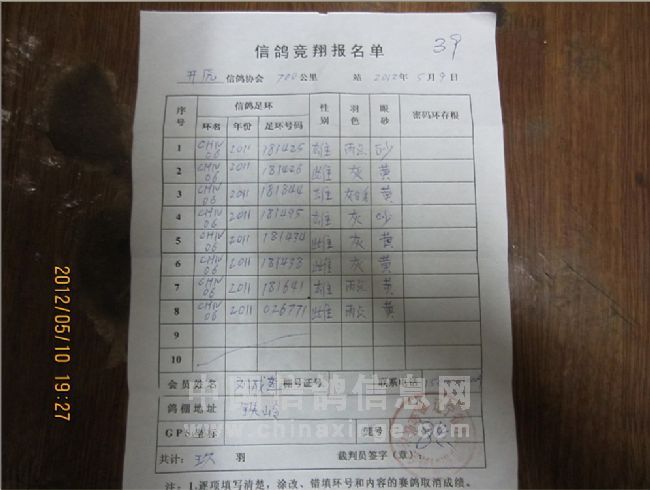 信鸽竞翔报名单 39
开原 信鸽协会 700公里 站 2012年5月9日
序号 信鸽足环 性别 羽色 眼砂 密码环存根
环名 年份 足环号码
1 CHN 06 2011 181425 雄 雨点 砂
2 CHN 06 2011 181426 雌 灰 黄
3 CHN 06 2011 181344 雄 黄
4 CHN 06 2011 181495 雄 灰 砂
5 CHN 06 2011 181434 雌 灰 黄
6 CHN 06 2011 181433 雌 灰 黄
7 CHN 06 2011 181641 雄 雨点 黄
8 CHN 06 2011 026771 雌 雨点 黄
9
10
会员姓名 棚号证号 联系电话
鸽棚地址 铁岭
GPS坐标
共计: 玖 羽 裁判员签字(章):
注:1.逐项填写清楚,涂改、错填环号和内容的赛鸽取消成绩。
中国信鸽信息网
www.chinaxinge.com
2012/05/10 19:27